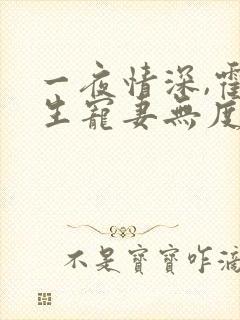 一夜情深,霍
生寵妻無度
不是寶寶咋滴